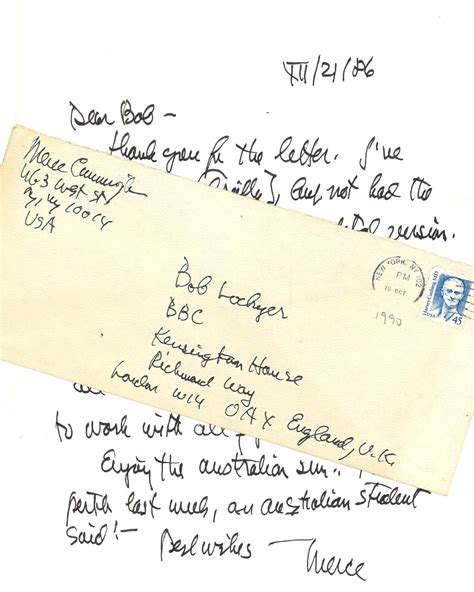 XII/21/86
Dear Bob –
Thank you for the letter. I've
not had the
version.
Merce Cunningham
463 West St
NY, NY 10014
USA
NEW YORK, NY 102
PM
18 OCT
1990
USA 45
Bob Lockyer
BBC
Kensington House
Richmond Way
London W14 0AX England, U.K.
to work with all
Enjoying the australian sun.
perth last week, an australian student
said! –
Best wishes – Merce